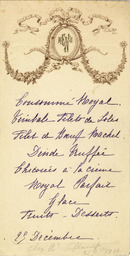 Consommé Royal
Timbale Filets de Soles
Filet de Bœuf
Dinde Truffée
Chicorées à la crème
Royal Parfait
Glace
Fruits - Desserts
Décembre